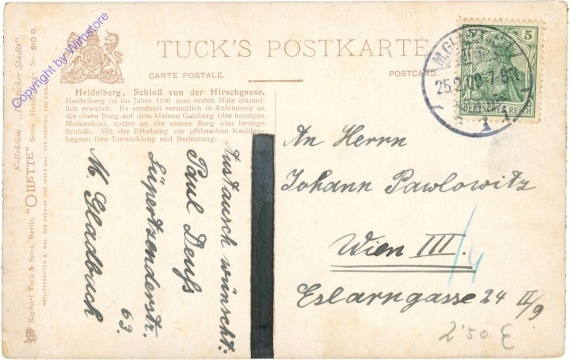 TUCK'S POSTKARTE
CARTE POSTALE.
POSTCARD.
Heidelberg, Schloß von der Hirschgasse.
Heidelberg ist im Jahre 1196 zum ersten Male urkundlich erwähnt. Es entstand vermutlich in Anlehnung an
die obere Burg auf dem kleinen Gaisberg (der heutigen
Molkenkur), später an die untere Burg (das heutige
Schloß). Mit der Erhebung zur pfälzischen Residenz
begann ihre Entwicklung und Bedeutung.
Serie
"OILETTE"
No. 610 B.
Raphael Tuck & Sons, Berlin
Copyright by Wimstore
M. GL
25.2.09. 7-8
5
DEUTSCHES REICH
Austausch wünscht:
Paul Deuß
Lüpertzenderstr.
63.
M Gladbach
An Herrn
Johann Pawlowitz
Wien III
/4
Eslarngasse 24 II/9
2'50 €